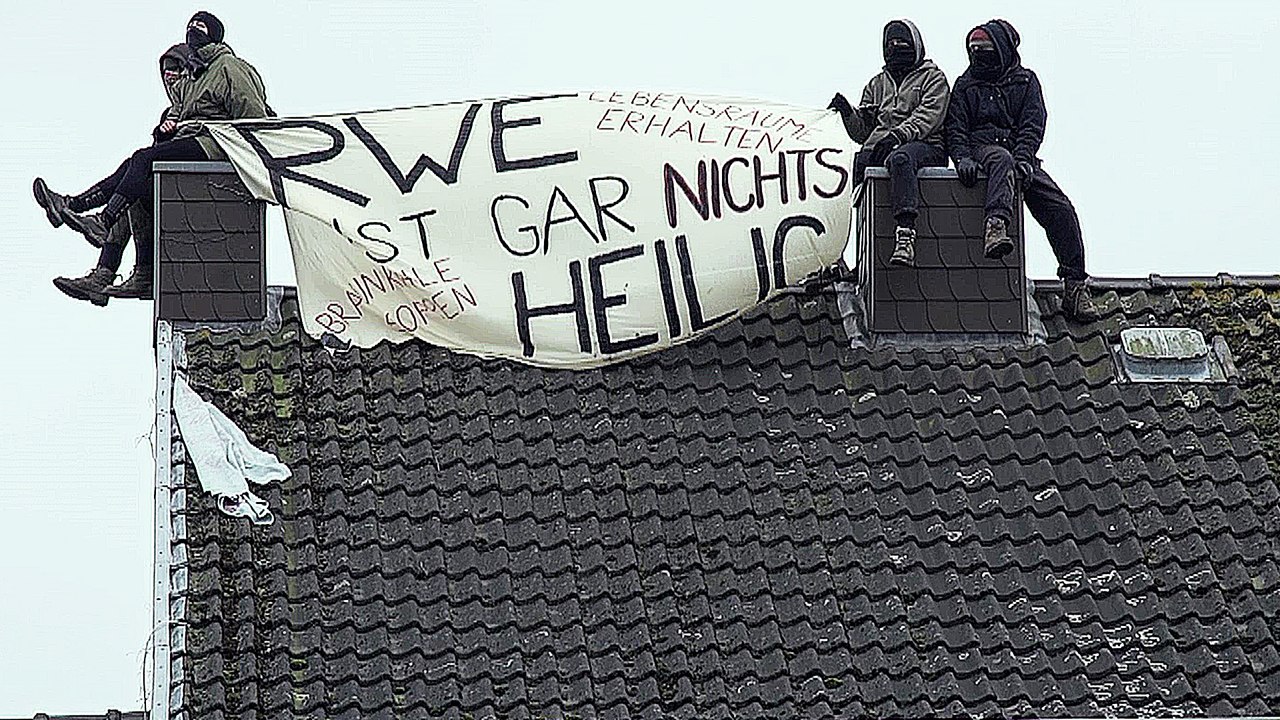 RWE
LEBENSRÄUME
ERHALTEN
IST GAR NICHTS
HEILIG
BRAUNKOHLE
STOPPEN